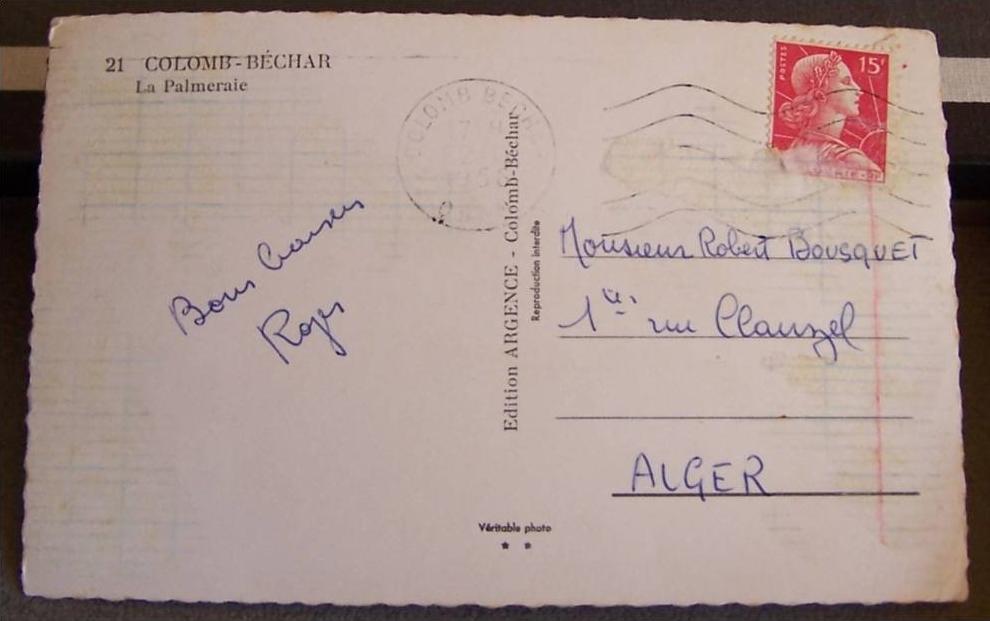 21 COLOMB-BÉCHAR
La Palmeraie
COLOMB BECHAR
17 H
1958
POSTES 15F
ALGERIE-RF
Edition ARGENCE - Colomb-Béchar
Reproduction interdite
Bons baisers
Roger
Monsieur Robert BOUSQUET
1 rue Clauzel
ALGER
Véritable photo